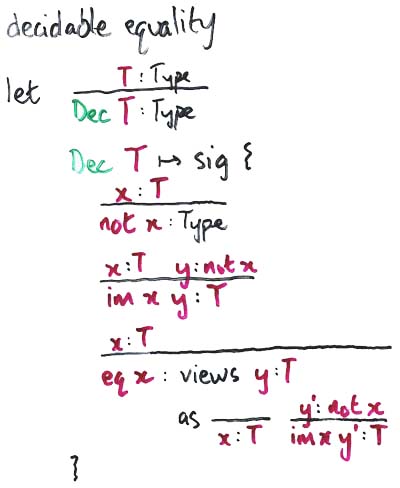 decidable equality
let T : Type
Dec T : Type
Dec T ↦ sig {
x : T
not x : Type
x : T y : not x
im x y : T
x : T
eq x : views y : T
as y' : not x
x : T im x y' : T
}